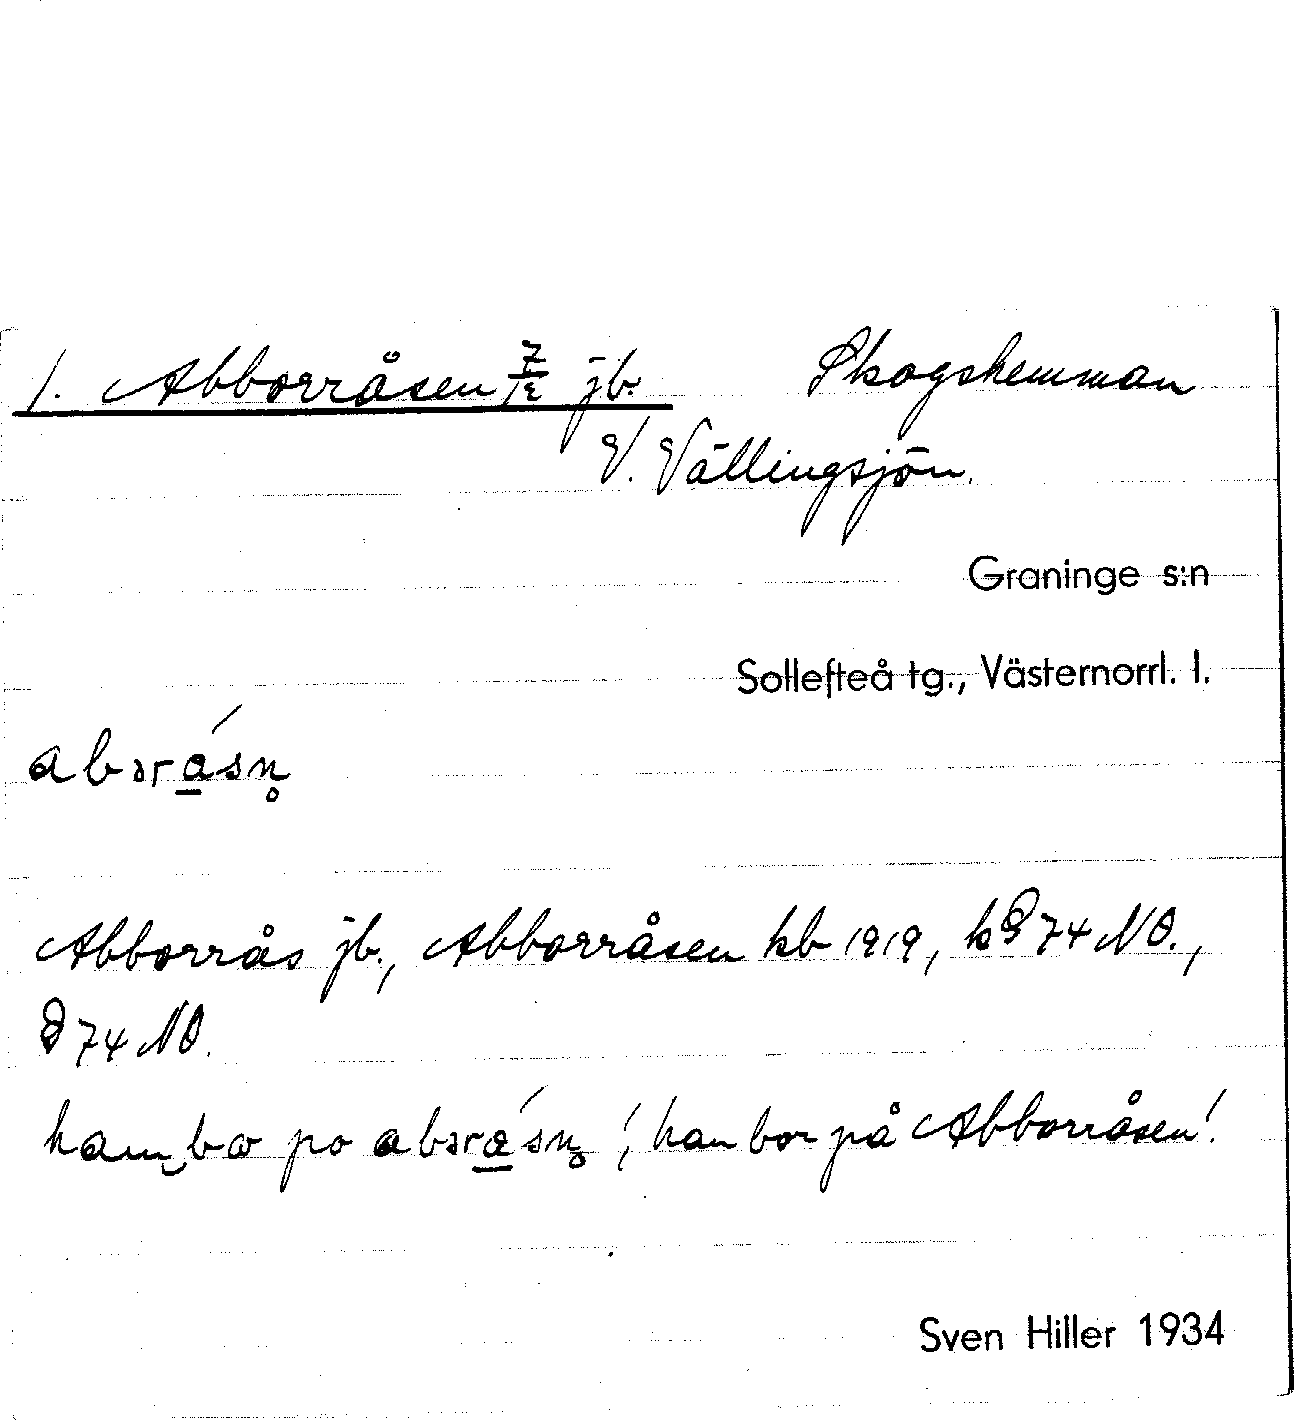 1. Abborråsen 7/12 jb. Skogshemman
V. Vällingsjön.
Graninge s:n
Sollefteå tg., Västernorrl. l.
abərásn̥
Abborrås jb., Abborråsen kb 1919, k 74 NO.,
74 NO.
ham‿bɷ po abərásn̥ 'han bor på Abborråsen'.
Sven Hiller 1934